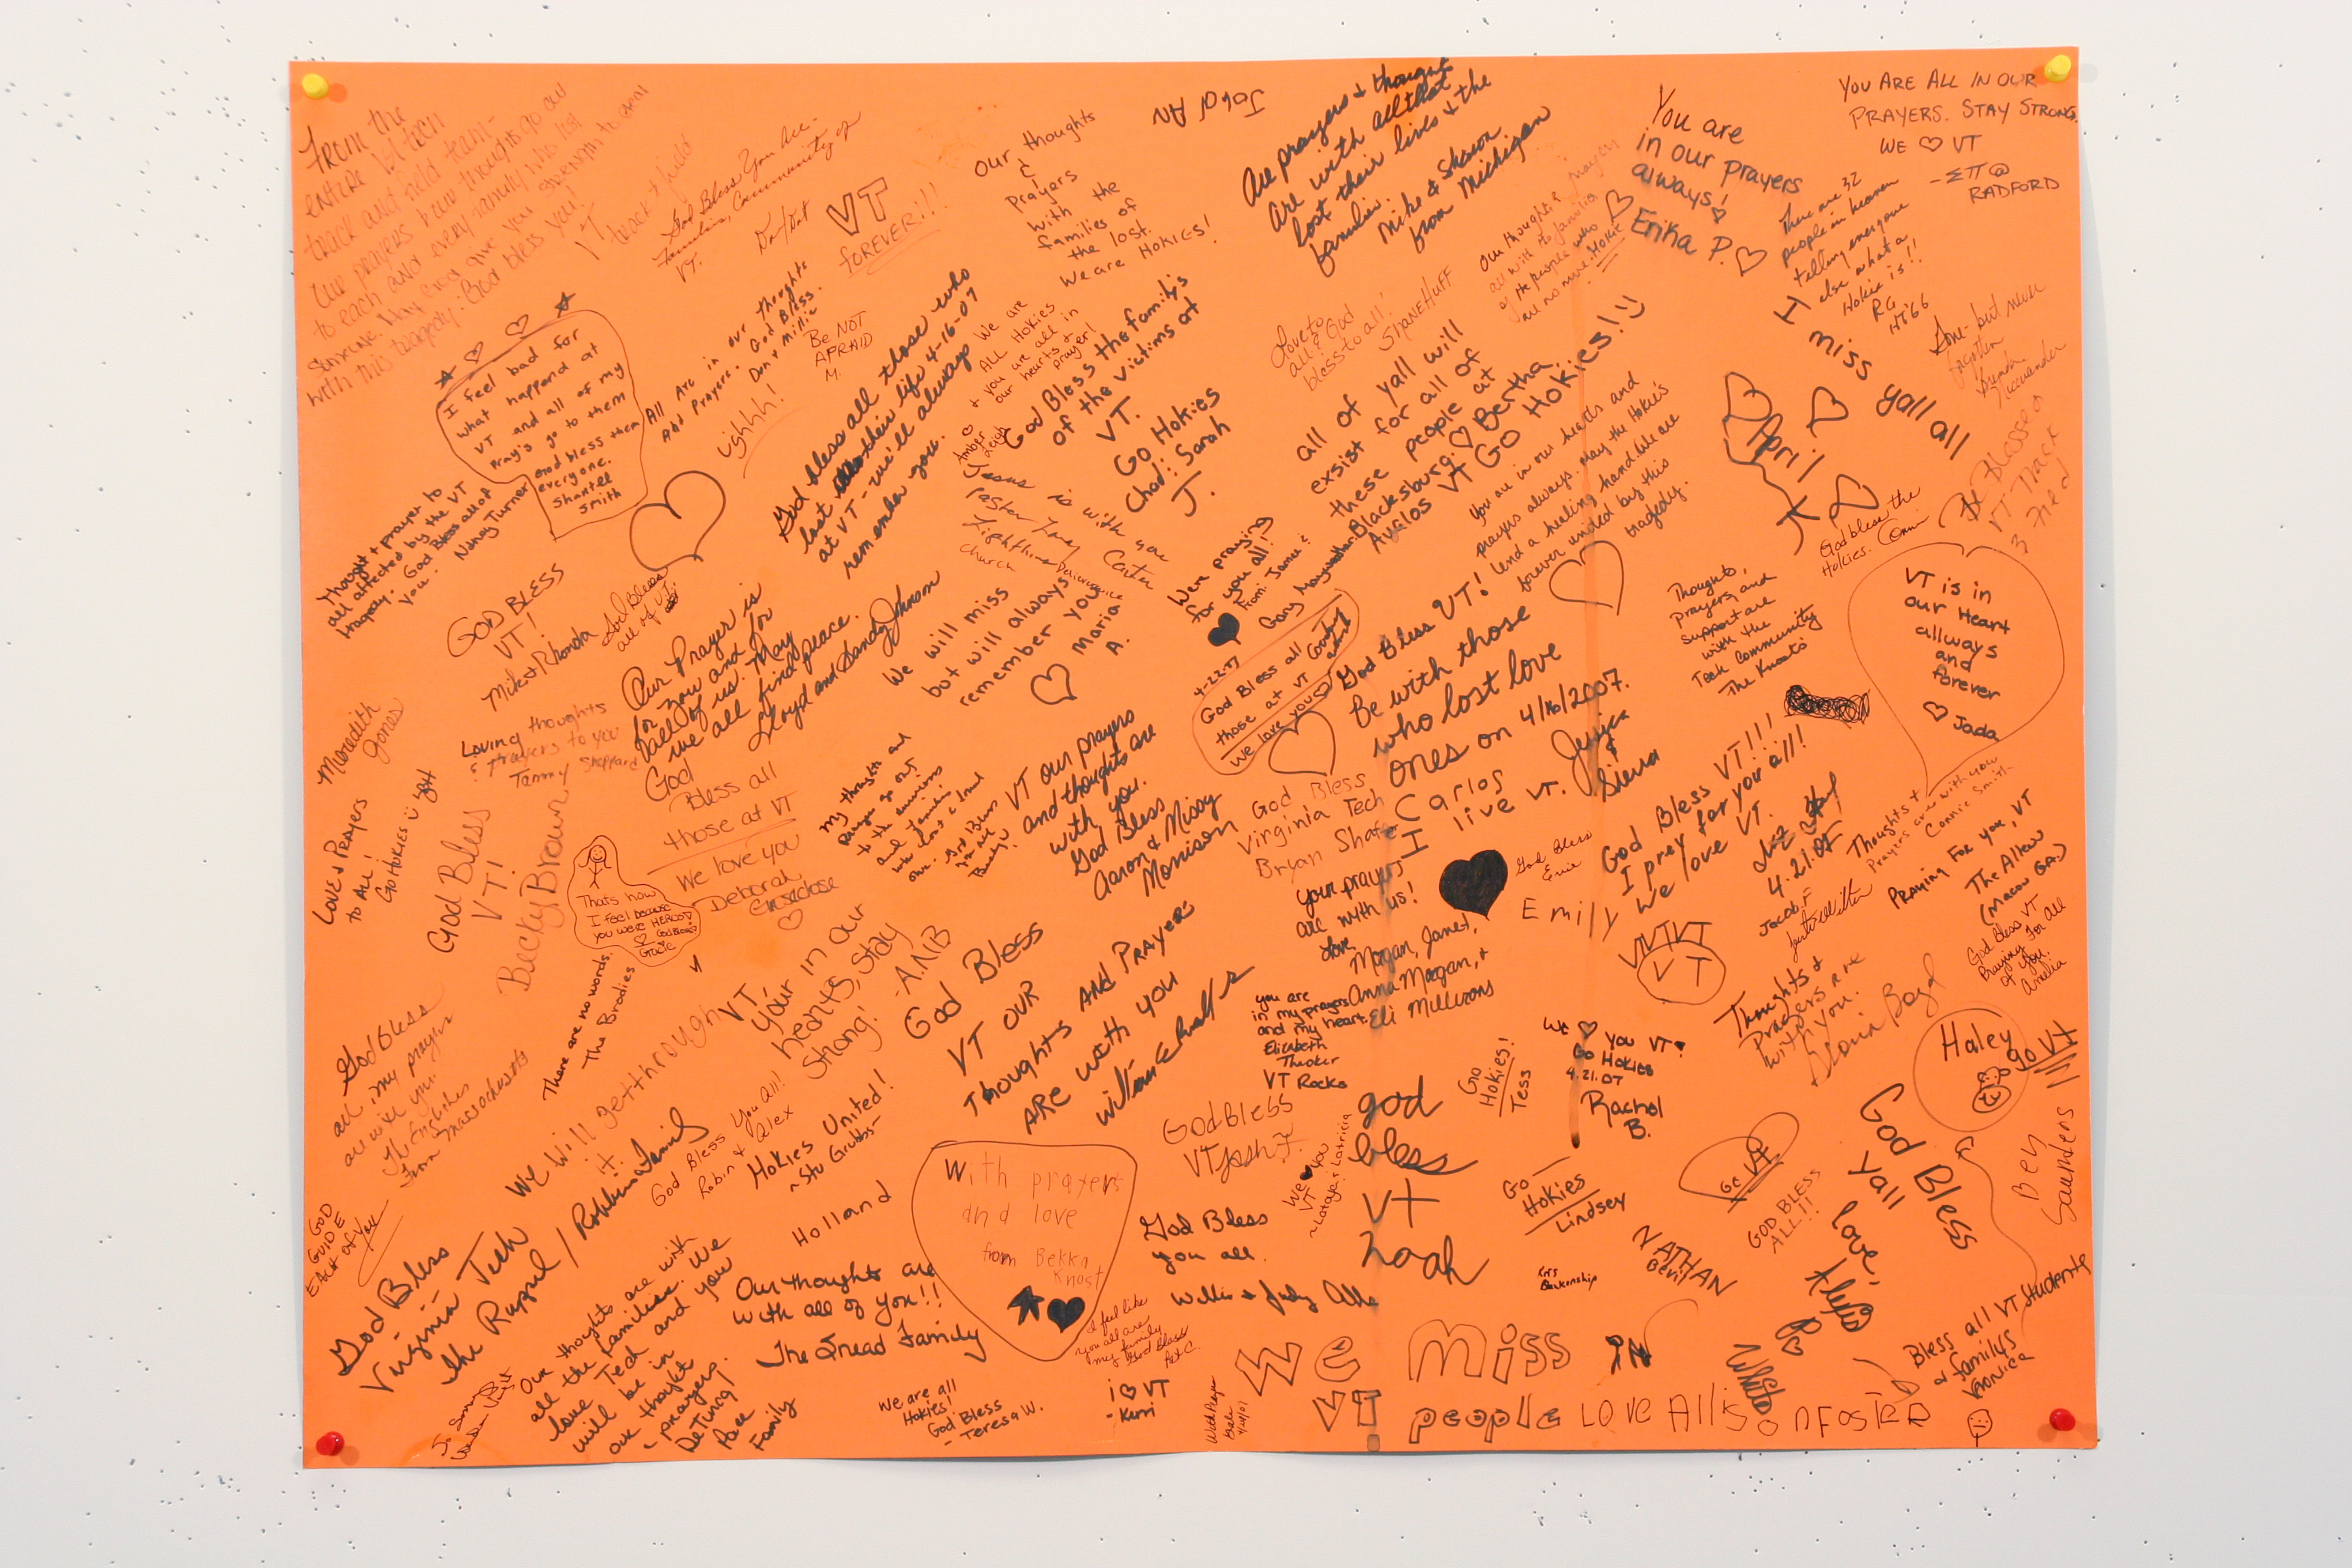 From the
entire
track and field team-
our prayers and thoughts go out
to each and every family who lost
someone. May God give you strength to
with this tragedy. God bless you!
VT track & field
God Bless You All.
Families, Community of
VT.
VT
FOREVER!!!
Our thoughts
&
Prayers
with the
families of
the lost.
We are HOKIES!
JORdAN
Are prayers & thought
are with all that
lost their lives & the
families.
Mike & Sharon
from Michigan
You are
in our prayers
always!
Erika P.
YOU ARE ALL IN OUR
PRAYERS. STAY STRONG.
WE ♡ VT
-ΣΠ @
RADFORD
There are 32
people in heaven
telling everyone
else what a
Hokie is!!
RG
HT'66
I miss yall all
April
Gone - but never
forgotten
VT Track
Field
I feel bad for
what happend at
VT and all of my
pray's go to them
God bless them
everyone.
Shantell
Smith
All Are in our thoughts
And Prayers. God Bless.
Don & Millie
Be NOT
AFRAID
M.
ughhh!
God bless all those who
lost their life 4-16-07
at VT - we'll always
remember you.
We are
ALL Hokies
& you are all in
our hearts &
prayer!
Amber
Leigh
God Bless the familys
of the victims at
VT.
Go Hokies
Chad & Sarah
J.
Love to
all & God
bless to all!
SHANE HUFF
Our thoughts & prayers
all with the families
of the people who
are no more. Hokie
all of yall will
exsist for all of
these people at
Blacksburg. ♡ Bertha
Avalos VT GO HOKIES!!
You are in our hearts and
prayers always. May the Hokie's
lend a healing hand we are
forever united by this
tragedy.
God bless the
Hokies.
VT is in
our Heart
allways
and
forever
♡ Jada
Thought & prayer to
all affected by the VT
tragedy. God Bless all of
you. Nancy Turner
GOD BLESS
VT!
Mike & Rhonda
God Bless
all of VT.
Our Prayer is
for now and for
all of us. May
we all find peace.
Lloyd and Sandy Johnson
Jesus is with you
Pastor Tony Carter
Lighthouse Deliverance
Church
We will miss
but will always
remember you
♡ Maria
A.
Were praying
for you all!
From: Jamie &
Gary Mayweather
4-22-07
God Bless all
those at VT
we love you
Courtney
God Bless VT!
Be with those
who lost love
ones on 4/16/2007.
Jessica
&
Sierra
Thoughts,
prayers, and
support are
with the
Tech Community
The Knosts
Meredith
Jones
Loving thoughts
& Prayers to you
Tammy Sheppard
God
Bless all
those at VT
We love you
Deborah
My thoughts and
prayers go out
to the survivors
and families
who lost a loved
one. God Bless
you all
VT our prayers
and thoughts are
with you.
God Bless
Aaron & Missy
Morrison
God Bless
Virginia Tech
Bryan Shafe
Carlos
I live VT.
God Bless VT!!!
I pray for you all!
We love VT.
4.21.07
Jacob F
Thoughts &
Prayers are with you
Connie Smith
Praying for you, VT
The Allens
(Macon GA.)
God bless VT
Praying for all
of you.
Amelia
Love & Prayers
to All!
Go HOKIES
God Bless
VT!
Becky Brown
Thats how
I feel because
you were HEROS!
God Bless
Gracie
There are no words.
The Brodies
VT,
your in our
hearts, stay
Strong!
-ANB
God Bless
VT OUR
Thoughts AND Prayers
ARE with you
Your prayers
are with us!
Love
Morgan, Janet,
Anna Morgan, &
Eli Millirons
God Bless
Emily
VTVTVT
VT
you are
in my prayers
and my heart.
Elizabeth
Thacker
VT Rocks
Thoughts &
Prayers are
with you.
Gloria Boyd
Haley
go VT
God Bless
all, my prayers
are with you.
The Englishes
from Massachusetts
We will get through
it.
God Bless You All!
Robin & Alex
Hokies United!
~Stu Grubbs~
Holland
With prayers
and love
from Bekka
Knost
God Bless
VT Josh F.
We ♥ you
VT
god
bless
VT
noah
Go
Hokies!
Tess
We ♡ you VT!
Go Hokies
4.21.07
Rachel
B.
Go
Hokies
Lindsey
Go VT
GOD BLESS
ALL!!
God Bless
Yall
love,
Alexis
Ben
Saunders
GOD
GUIDE
EACH of You
God Bless
Virginia Tech
The Ruppel / Robbins Family
Our thoughts are with
all the families. We
love Tech and you
will be in
our thought
& prayers.
DeTurng/
Pace
Family
Our thoughts are
with all of you!!
The Snead Family
God Bless
you all.
I feel like
you all are
my family
God Bless
Pat C.
NATHAN
Bevil
We Miss
VT people LOVE All
we are all
Hokies!
God Bless
-Teresa W.
i ♡ VT
-Kerri
Bless all VT Students
& familys
Veronica